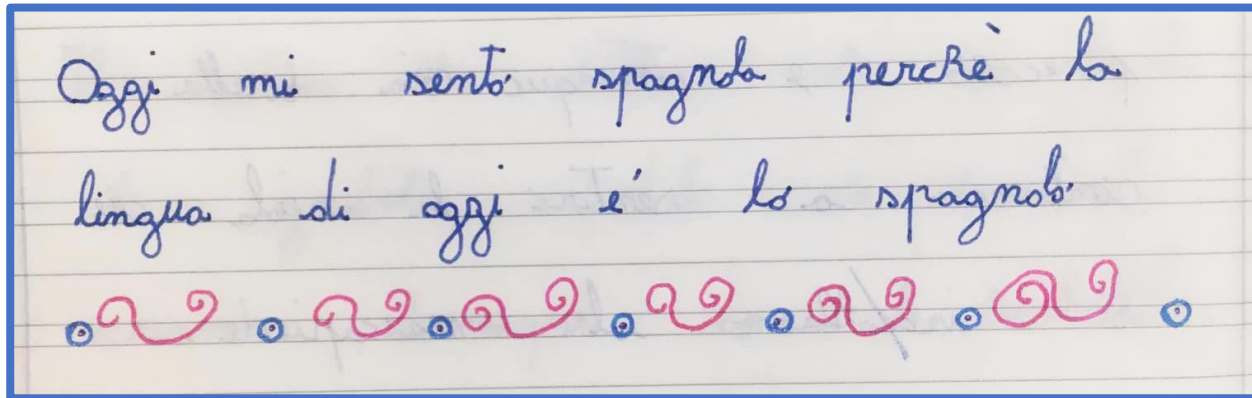 Oggi mi sento spagnola perchè la
lingua di oggi é lo spagnolo